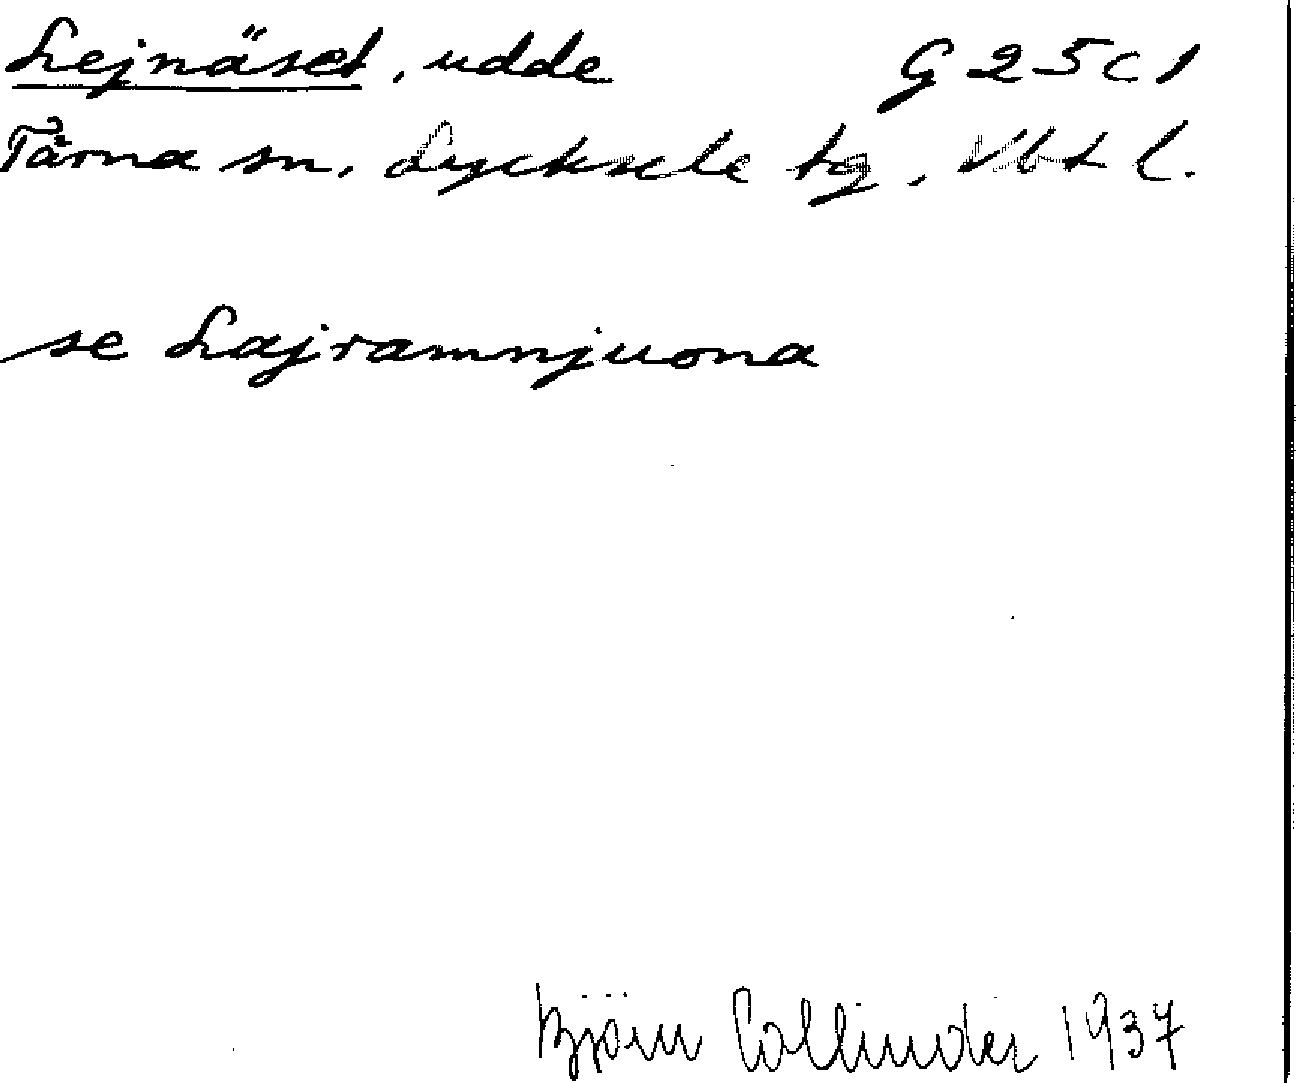 Lejnäset, udde G 25 C 1
Tärna sn. Lycksele tg. Vbt l.
se Lajramnjuona
Björn Collinder 1937